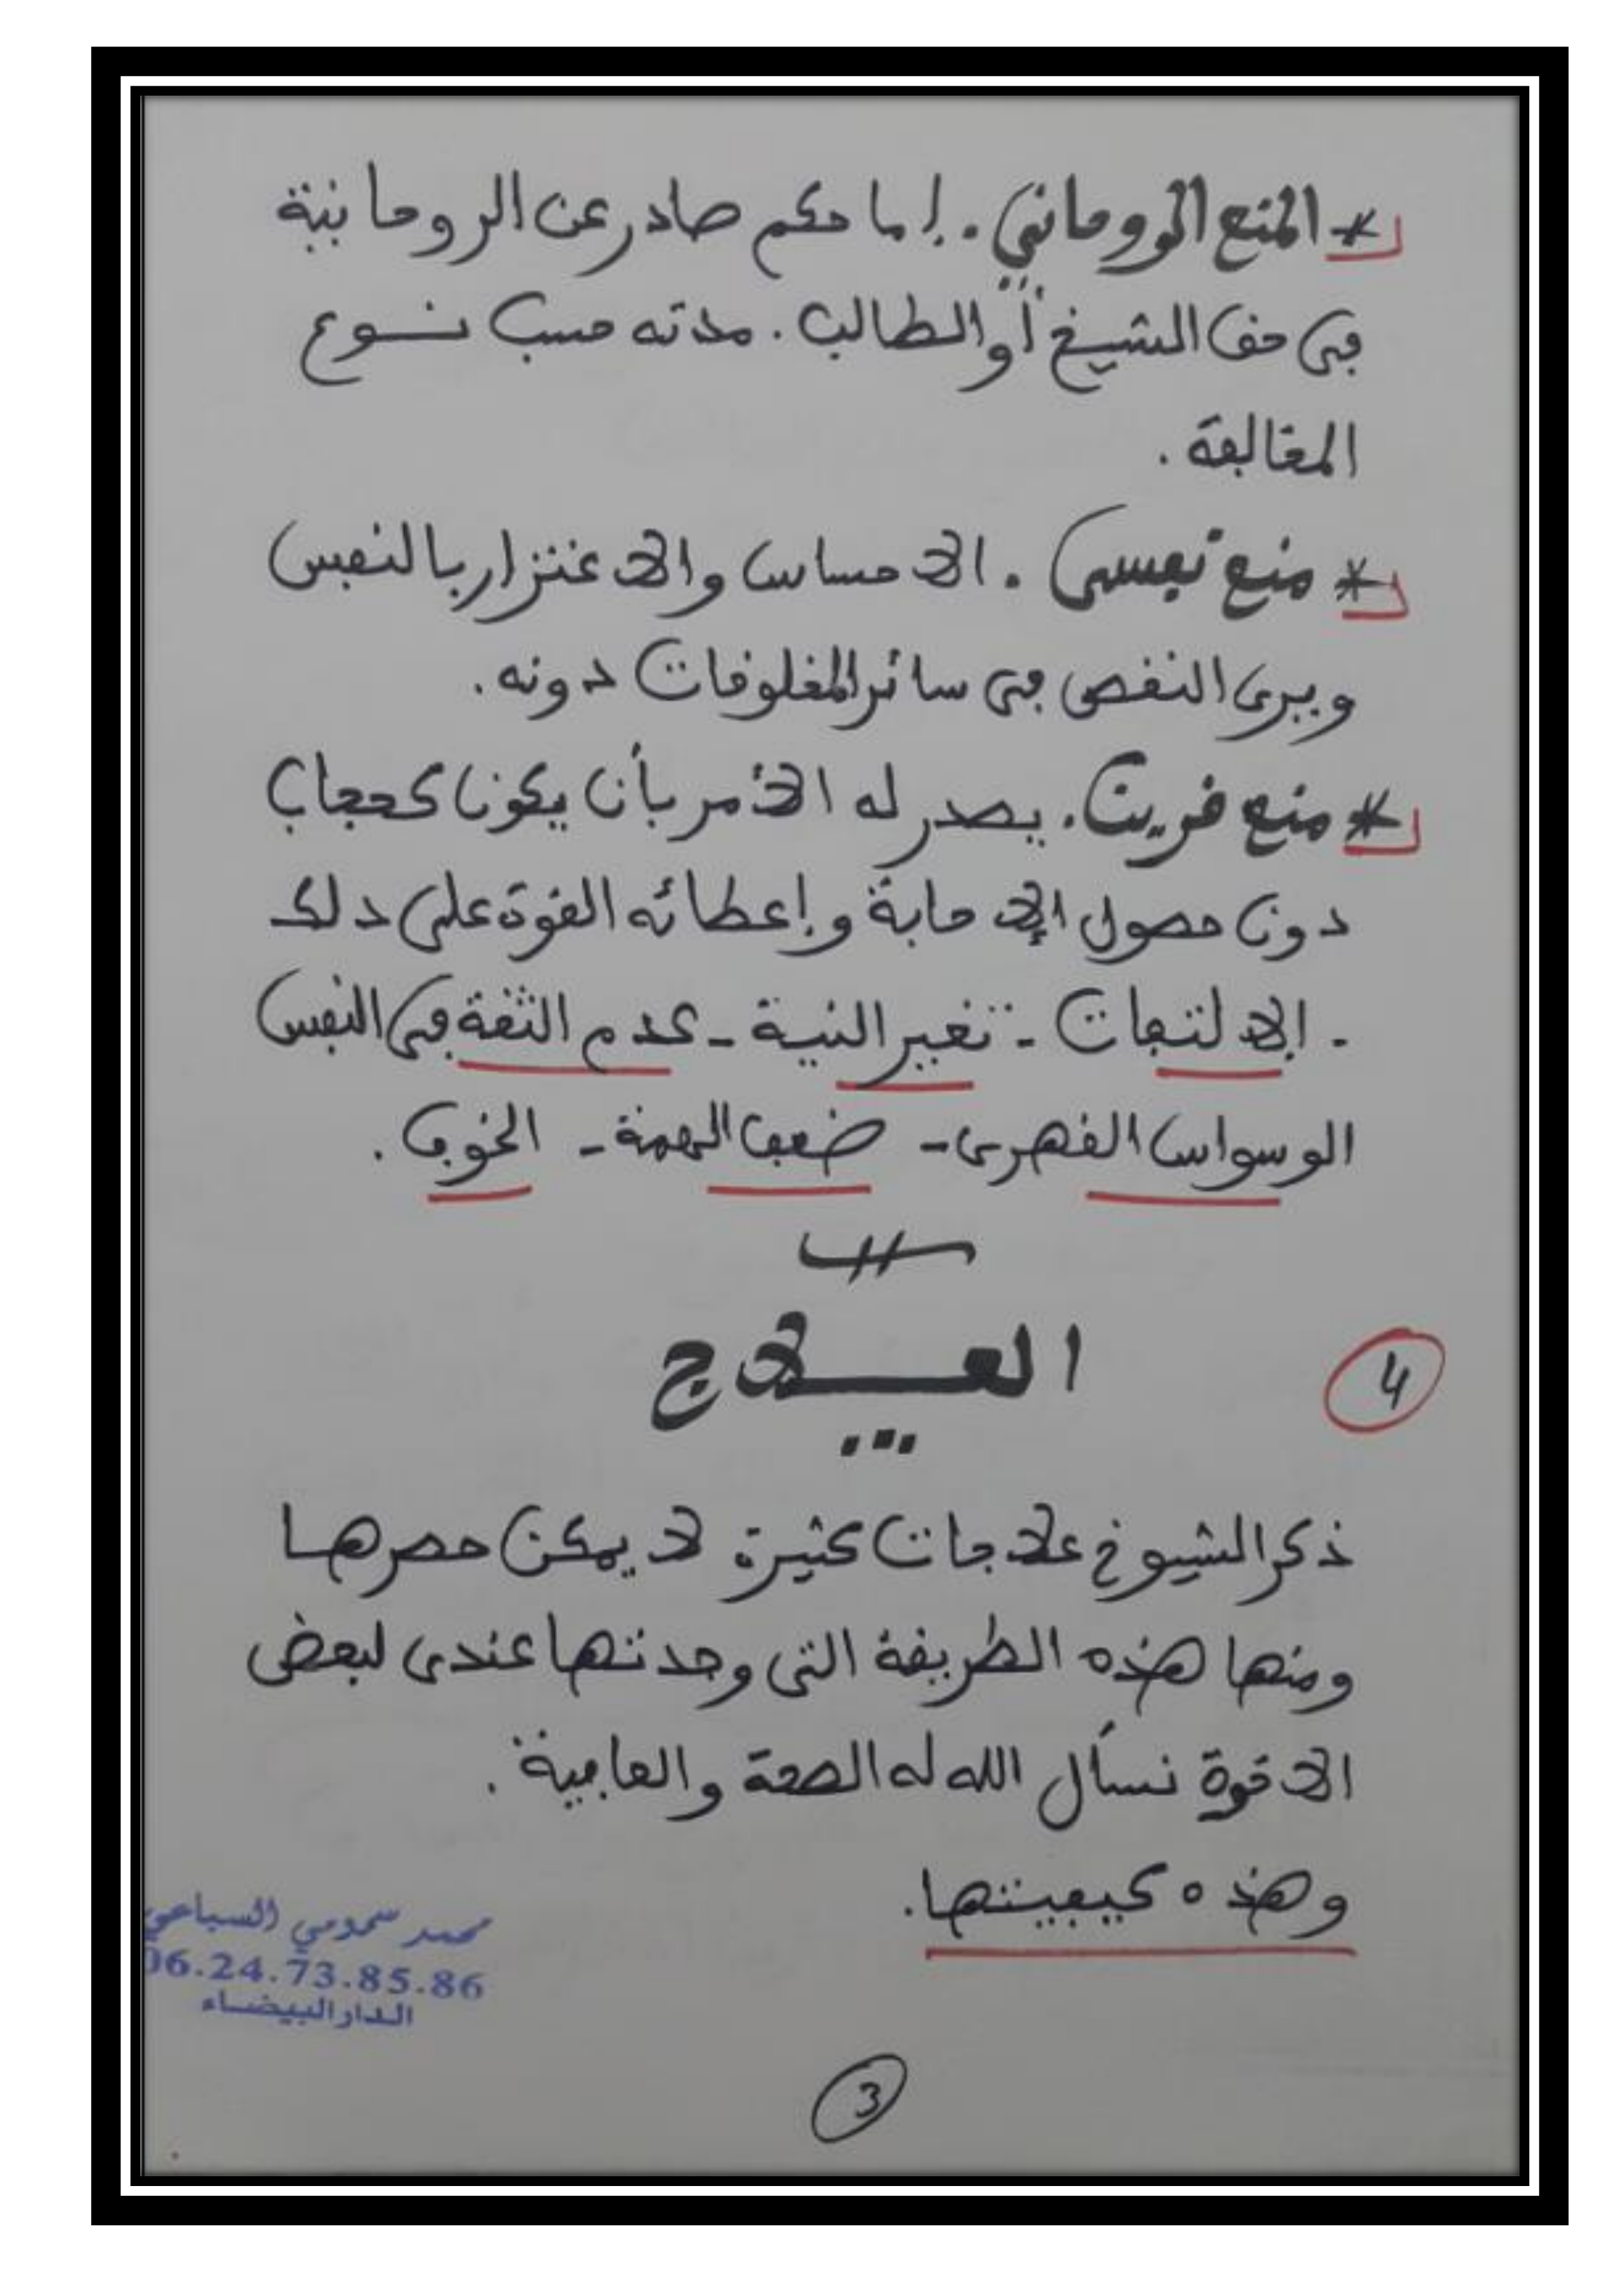 * المنع الروحاني. إما حكم صادر عن الروحانية
في حق الشيخ أو الطالب. مدته حسب نـوع
المخالفة.
* منع نفسي. الاحساس والاغتزار بالنفس
ويرى النقص في سائر المخلوقات دونه.
* منع قرين. يصدر له الأمر بأن يكون كحجاب
دون حصول الإجابة وإعطائه القوة على دلك
- الإلتفات - تغير النية - عدم الثقة في النفس
الوسواس القهري - ضعف الهمة - الخوف.
4
العـــلاج
ذكر الشيوخ علاجات كثيرة لا يمكن حصرهـا
ومنها هذه الطريقة التي وجدتها عندي لبعض
الاخوة نسأل الله له الصحة والعافية.
وهذه كيفيتها.
محمد سحومي السباعي
06.24.73.85.86
الدار البيضاء
3